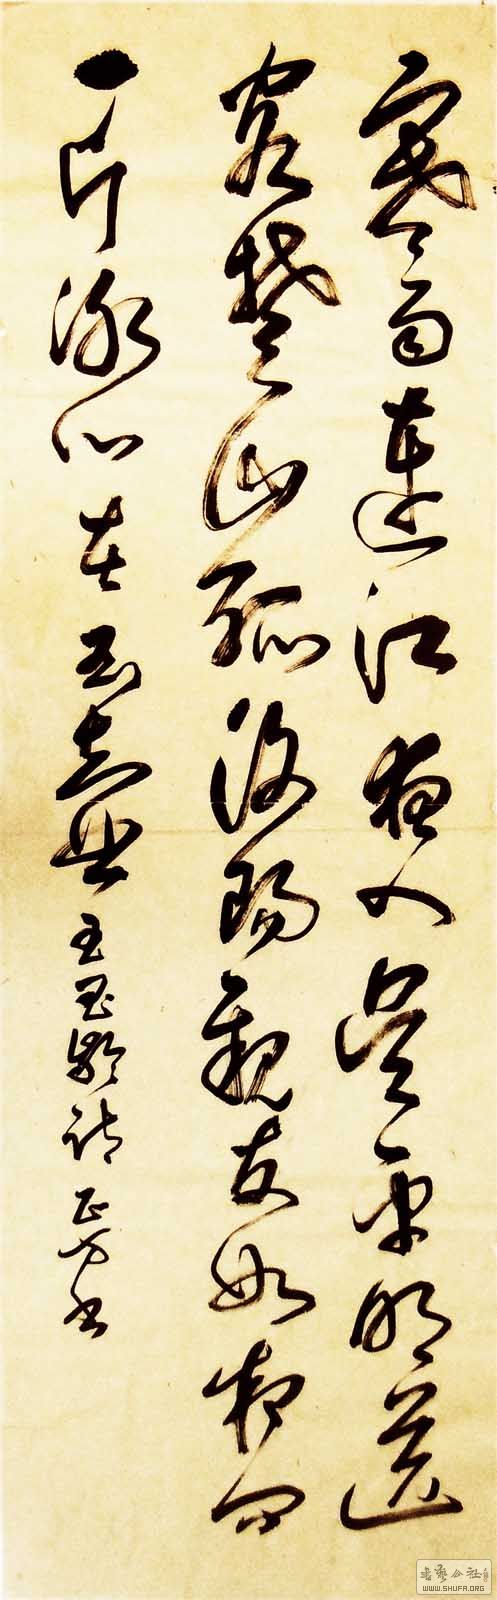 寒雨連江夜入吳平明送
客楚山孤洛陽親友如相問
一片冰心在玉壺 王昌齡詩 正方書
書藝公社
WWW.SHUFA.ORG